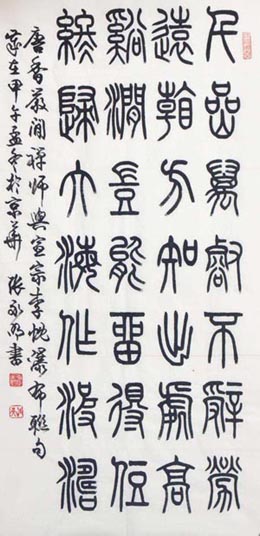 千嵒萬壑不辭勞
遠看方知出處高
谿澗豈能留得住
終歸大海作波濤
唐香嚴閒禪師與宣宗李忱瀑布聯句
歲在甲子孟冬於京華 張永明書